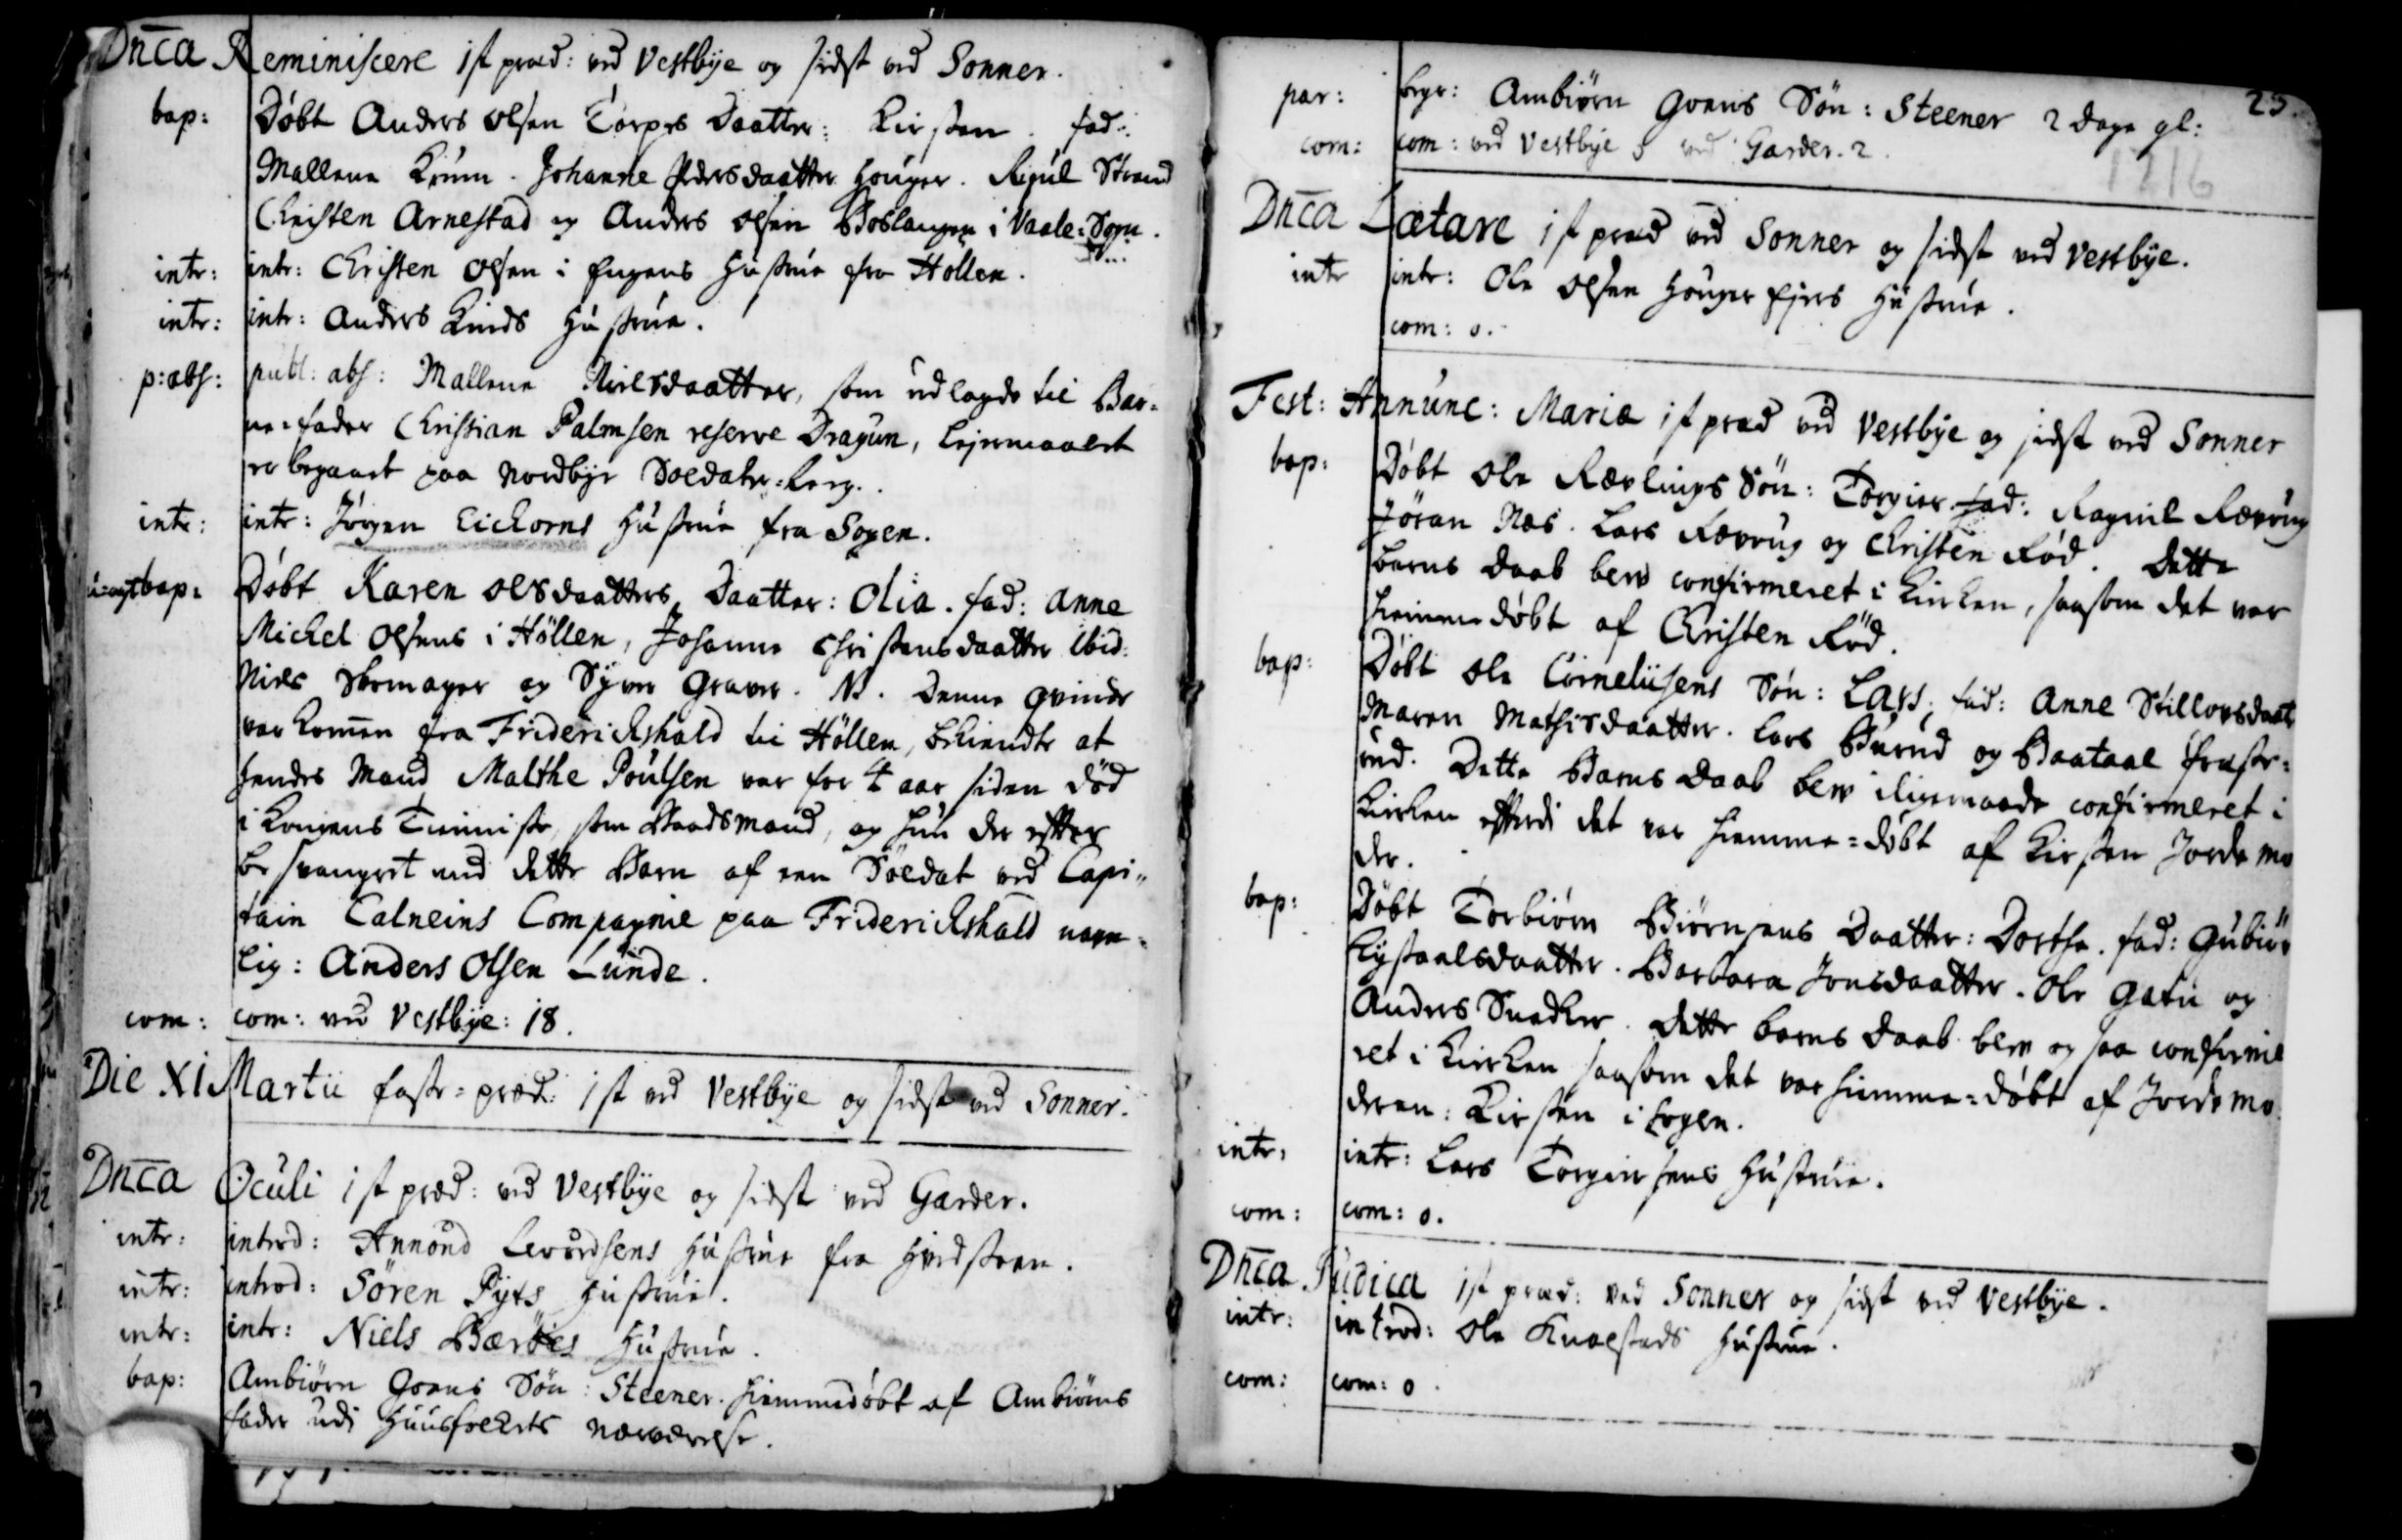 Dn̄ca Reminiscere 1st præd: ved Vestbÿe og sidst ved Sonner.
bap: Döbt Anders Olsen Torpes Daatter: Kirsten. fad:
Mallene Krum. Johanne Pedersdaatter Houger. Strand
Christen Arnestad og Anders Olsen Boslangen i Vaale-Sogn.
intr: intr: Christen Olsen i Engens Hustrue fra Hollen.
intr: intr: Anders Kinds Hustrue.
p:abs: publ: abs: Mallene Nielsdaatter, som udlagde til Bar-
ne-fader Christian Palmsen reserve Dragun, lejermaalet
er begaaet paa Nordbye Soldater-Leig.
intr: intr: Jörgen Eickorns Hustrue fra Sogen.
u-ægt bap: Döbt Karen Olsdaatters Daatter: Olia. fad: Anne
Michel Olsens i Höllen, Johanne Christensdaatter ibid:
Niels Skomager og Syver Graver. NB. Denne qvinde
var kom̄en fra Friderichshald til Höllen, bekiendte at
hendes Mand Malthe Poulsen var for 4 aar siden död
i Kongens Tienniste, som Baadsmand, og hun der efter
besvangret med dette Barn af een Soldat ved Capi-
tain Calneins Compagnie paa Friderichshald navn-
lig: Anders Olsen Lunde.
com: com: ved Vestbÿe: 18.
Die XI Martii faste-præd: 1st ved Vestbÿe og sidst ved Sonner.
Dn̄ca Oculi 1st præd: ved Vestbÿe og sidst ved Garder.
intr: introd: Annond Levordsens Hustrue fra Hvidsteen.
intr: introd: Sören Pyts Hustrue.
intr: intr: Niels Bærøes Hustrue.
bap: Ambiörn Goens Sön: Steener. hiemmedöbt af Ambiörns
fader udi Huusfolkets nærværelse.
25.
par: begr: Ambiörn Goens Sön: Steener 2 dage gl:
com: com: ved Vestbÿe 5 ved Garder. 2.
1716
Dn̄ca Lætare 1st præd ved Sonner og sidst ved Vestbÿe.
intr intr: Ole Olsen Houger Ejers Hustrue.
com: 0.
Fest: Annunc: Mariæ 1st præd ved Vestbÿe og sidst ved Sonner
bap: Döbt Ole Rævlings Sön: Torgier fad: Ragnil Rævrug
Jöran Næs. Lars Rævrug og Christen Röd. Dette
Barns Daab blev confirmeret i Kirken, saasom det var
hiemme döbt af Christen Röd.
bap: Döbt Ole Corneliisens Sön: Lars; fad: Anne Stillovsdaat
Maren Mathisdaatter. Lars Burud og Baataal
rud. Dette Barns Daab blev iligemaade confirmeret i
Kirken efterdi det var hiemme-döbt af Kirsten Jordemo
der.
bap: Döbt Torbiörn Biörnsens Daatter: Dorthe. fad: Gubiör
Daatter. Barbara Jonsdaatter. Ole Gatu og
Anders Snedker. Dette barns Daab blev og saa confirme
ret i Kirken saasom det var hiemme-döbt af Jordemo
deren: Kirsten i Sogen.
intr: intr: Lars Torgiersens Hustrue.
com: com: 0.
Dn̄ca Judica 1st præd: ved Sonner og sidst ved Vestbÿe.
intr: introd: Ole Knalstads Hustrue.
com: com: 0.